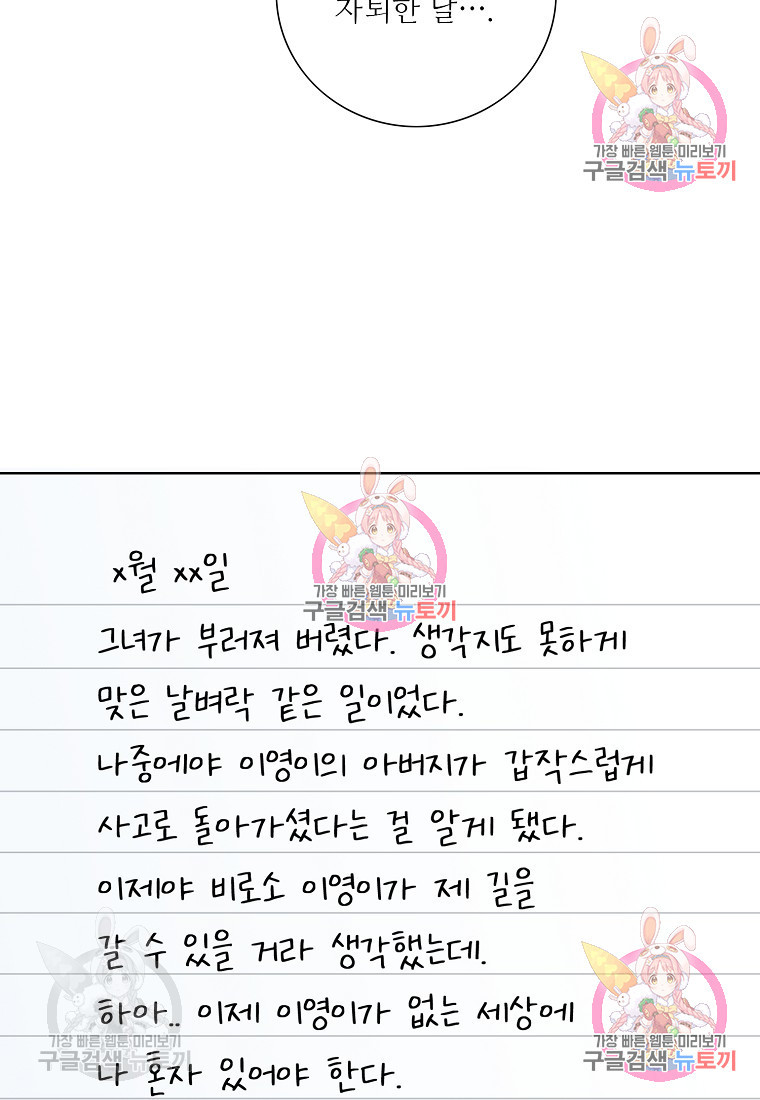 자퇴한 날….
가장 빠른 웹툰 미리보기
구글검색 뉴토끼
가장 빠른 웹툰 미리보기
구글검색 뉴토끼
x월 xx일
그녀가 부러져 버렸다. 생각지도 못하게
맞은 날벼락 같은 일이었다.
나중에야 이영이의 아버지가 갑작스럽게
사고로 돌아가셨다는 걸 알게 됐다.
이제야 비로소 이영이가 제 길을
갈 수 있을 거라 생각했는데.
하아.. 이제 이영이가 없는 세상에
나 혼자 있어야 한다.
가장 빠른 웹툰 미리보기
구글검색 뉴토끼
가장 빠른 웹툰 미리보기
구글검색 뉴토끼